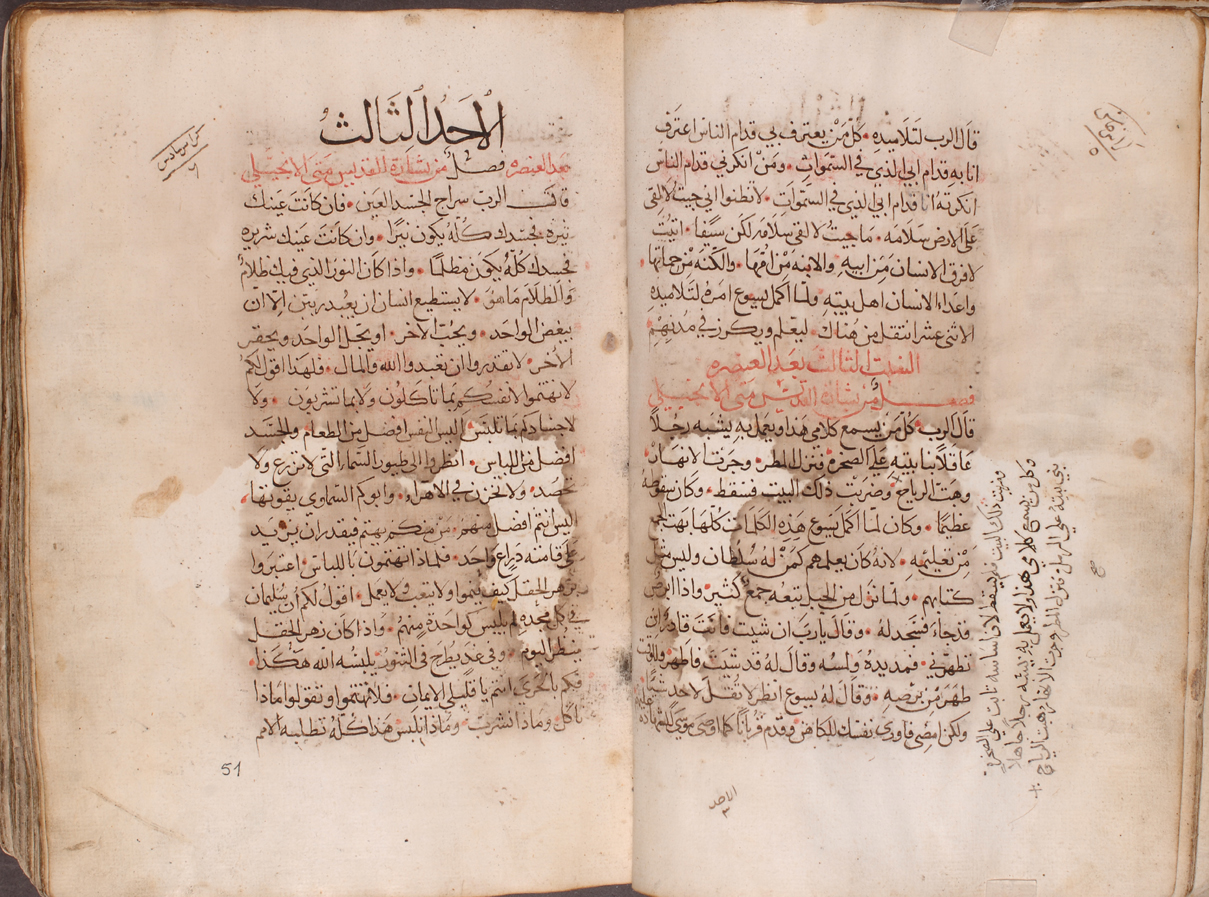 قال الرب لتلاميذه • كل من يعترف بي قدام الناس اعترف
انا به قدام ابي الذي في السموات • ومن انكرني قدام الناس
انكرته انا قدام ابي الذي في السموات • لا تظنوا اني جيت لالقي
على الارض سلامه • ما جيت لالقي سلامه لكن سيفا • اتيت
لافرق الانسان من ابيه والابنه من امها • والكنه من حماتها •
واعدا الانسان اهل بيته ولما اكمل يسوع امره لتلاميذه
الاثنى عشر انتقل من هناك • ليعلم ويكرز في مدنهم
السبت الثالث بعد العنصره
فصل من بشارة القديس متى الانجيلي
قال الرب • كل من يسمع كلامي هذا ويعمل به يشبه رجلا
عاقلا بنا بيته على الصخره فنزل المطر • وجرت الانهار
وهبت الرياح • وضربت ذلك البيت فسقط • وكان سقوطه
عظيما • وكان لما اكمل يسوع هذه الكلمات كلها بهت
من تعليمه • لانه كان يعلمهم كمن له سلطان وليس مثل
كتابهم • ولما نزل من الجبل تبعه جمع كثير • واذا ابرص
قد جاء فسجد له • وقال يا رب ان شيت فانت قادر ان
تطهرني • فمد يده ولمسه وقال له قد شيت فاطهر وللوقت
طهر من برصه • وقال له يسوع انظر لا تقل لاحد شيا
ولكن امضي فاوري نفسك للكاهن وقدم قربانا كما اوصى موسى
وضربت ذلك البيت فلم يسقط لان اساسه ثابت على الصخره
وكل من يسمع كلامي هذا ولا يعمل به يشبه رجلا جاهلا
بنى بيته على الرمل فنزل المطر وجرت الانهار وهبت الرياح
الاحد
٣
الاحد الثالث
بعد العنصره فصل من بشارة القديس متى الانجيلي
قال الرب سراج الجسد العين • فان كانت عينك
نيرة فجسدك كله يكون نيرا • وان كانت عينك شريره
فجسدك كله يكون مظلما • واذا كان النور الذي فيك ظلام
والظلام ما هو • لا يستطيع انسان ان يعبد ربين الا ان
يبغض الواحد • ويحب الاخر • او يجل الواحد ويحقر
الاخر • لا تقدروا ان تعبدوا الله والمال • فلهذا اقول لكم
لا تهتموا لانفسكم بما تاكلون ولا بما تشربون • ولا
لاجسادكم بما تلبس اليس النفس افضل من الطعام • والجسد
افضل من اللباس • انظروا الى طيور السماء التي لا تزرع ولا
تحصد • ولا تخزن في الاهراء • وابوكم السماوي يقوتها •
اليس انتم افضل منهم • من منكم يهتم فيقدر ان يزيد
على قامته ذراع واحد • فلماذا تهتمون باللباس • اعتبروا
بزهر الحقل كيف ينموا ولا يتعب ولا يعمل • اقول لكم ان سليمان
في كل مجده لم يلبس كواحدة منهم • واذا كان زهر الحقل
ينظر اليوم • وفي غد يطرح في التنور يلبسه الله هكذا •
فكم بالحري انتم يا قليلي الايمان • فلا تهتموا وتقولوا ماذا
ناكل • وماذا نشرب • وماذا نلبس هذا كله تطلبه الامم
51